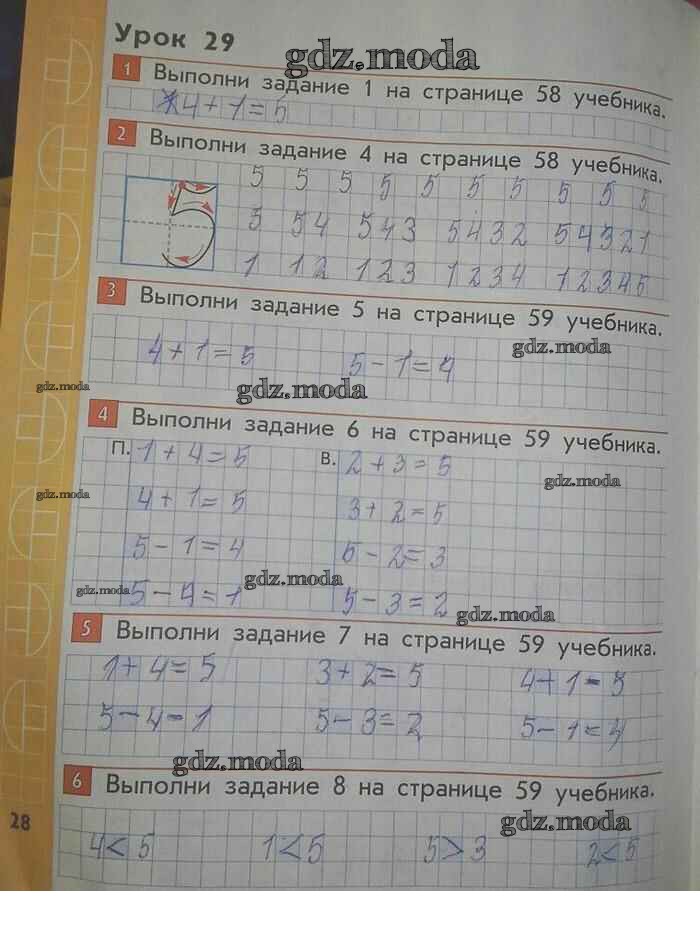 Урок 29
gdz.moda
1 Выполни задание 1 на странице 58 учебника.
4 + 1 = 5
2 Выполни задание 4 на странице 58 учебника.
5 5 5 5 5 5 5 5 5 5
5 54 543 5432 54321
1 12 123 1234 12345
3 Выполни задание 5 на странице 59 учебника.
gdz.moda
4 + 1 = 5 5 - 1 = 4
gdz.moda gdz.moda
4 Выполни задание 6 на странице 59 учебника.
П. 1 + 4 = 5 В. 2 + 3 = 5
gdz.moda gdz.moda
4 + 1 = 5 3 + 2 = 5
5 - 1 = 4 5 - 2 = 3
gdz.moda gdz.moda
5 - 4 = 1 5 - 3 = 2
gdz.moda
5 Выполни задание 7 на странице 59 учебника.
1 + 4 = 5 3 + 2 = 5 4 + 1 = 5
5 - 4 = 1 5 - 3 = 2 5 - 1 = 4
gdz.moda
6 Выполни задание 8 на странице 59 учебника.
28
gdz.moda
4 < 5 1 < 5 5 > 3 2 < 5